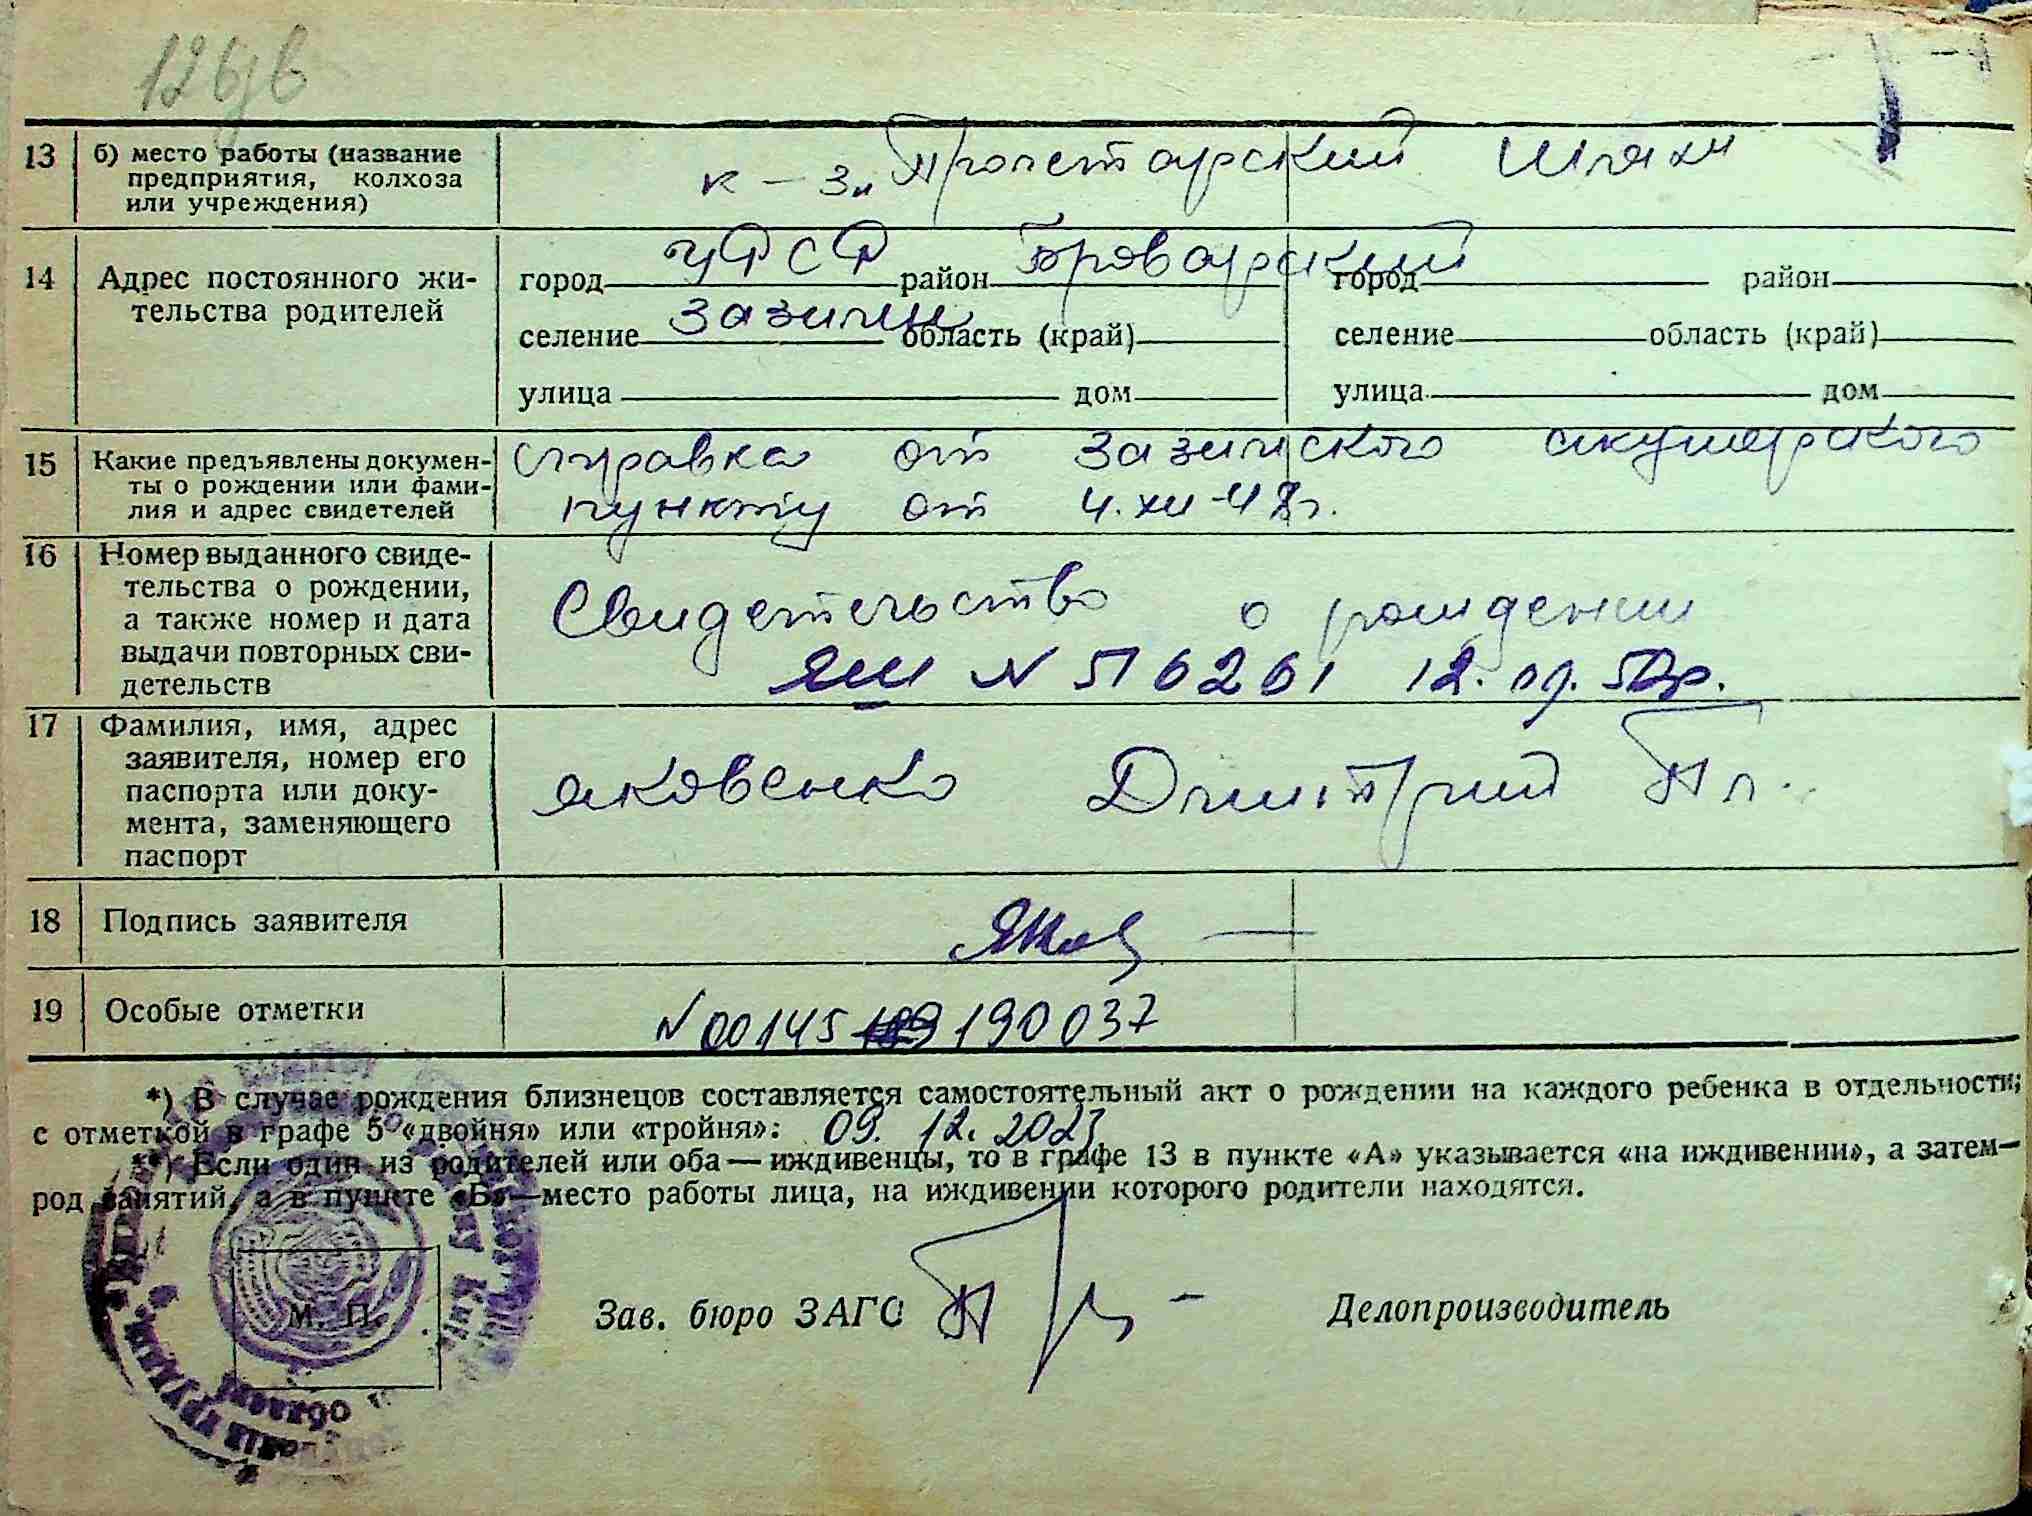 126/в
13 б) место работы (название
предприятия, колхоза
или учреждения)
к-з „Пролетарский Шлях"
14 Адрес постоянного жи-
тельства родителей
город УССР район Броварский город район
селение Зазимы область (край) селение область (край)
улица дом улица дом
15 Какие предъявлены докумен-
ты о рождении или фами-
лия и адрес свидетелей
справка от Зазимского акушерского
пункту от 4.XII-48г.
16 Номер выданного свиде-
тельства о рождении,
а также номер и дата
выдачи повторных сви-
детельств
Свидетельство о рождении
N 516261 12.
17 Фамилия, имя, адрес
заявителя, номер его
паспорта или доку-
мента, заменяющего
паспорт
Яковенко Дмитрий
18 Подпись заявителя
19 Особые отметки
N 00145 190037
*) В случае рождения близнецов составляется самостоятельный акт о рождении на каждого ребенка в отдельности;
с отметкой в графе 5 «двойня» или «тройня»: 09. 12. 2023
**) Если один из родителей или оба — иждивенцы, то в графе 13 в пункте «А» указывается «на иждивении», а затем—
род занятий, а в пункте «Б»—место работы лица, на иждивении которого родители находятся.
М. П.
Зав. бюро ЗАГС
Делопроизводитель